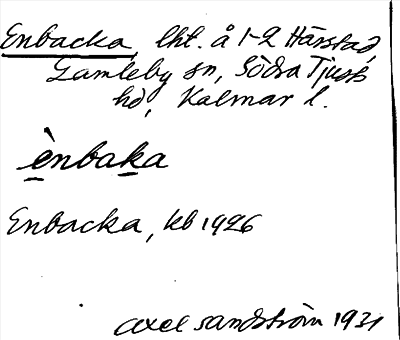 Enbacka, lht. å 1-2 Hårstad,
Gamleby sn, Södra Tjusts
hd, Kalmar l.
ènbaka
Enbacka, kb 1926
Axel Sandström 1931